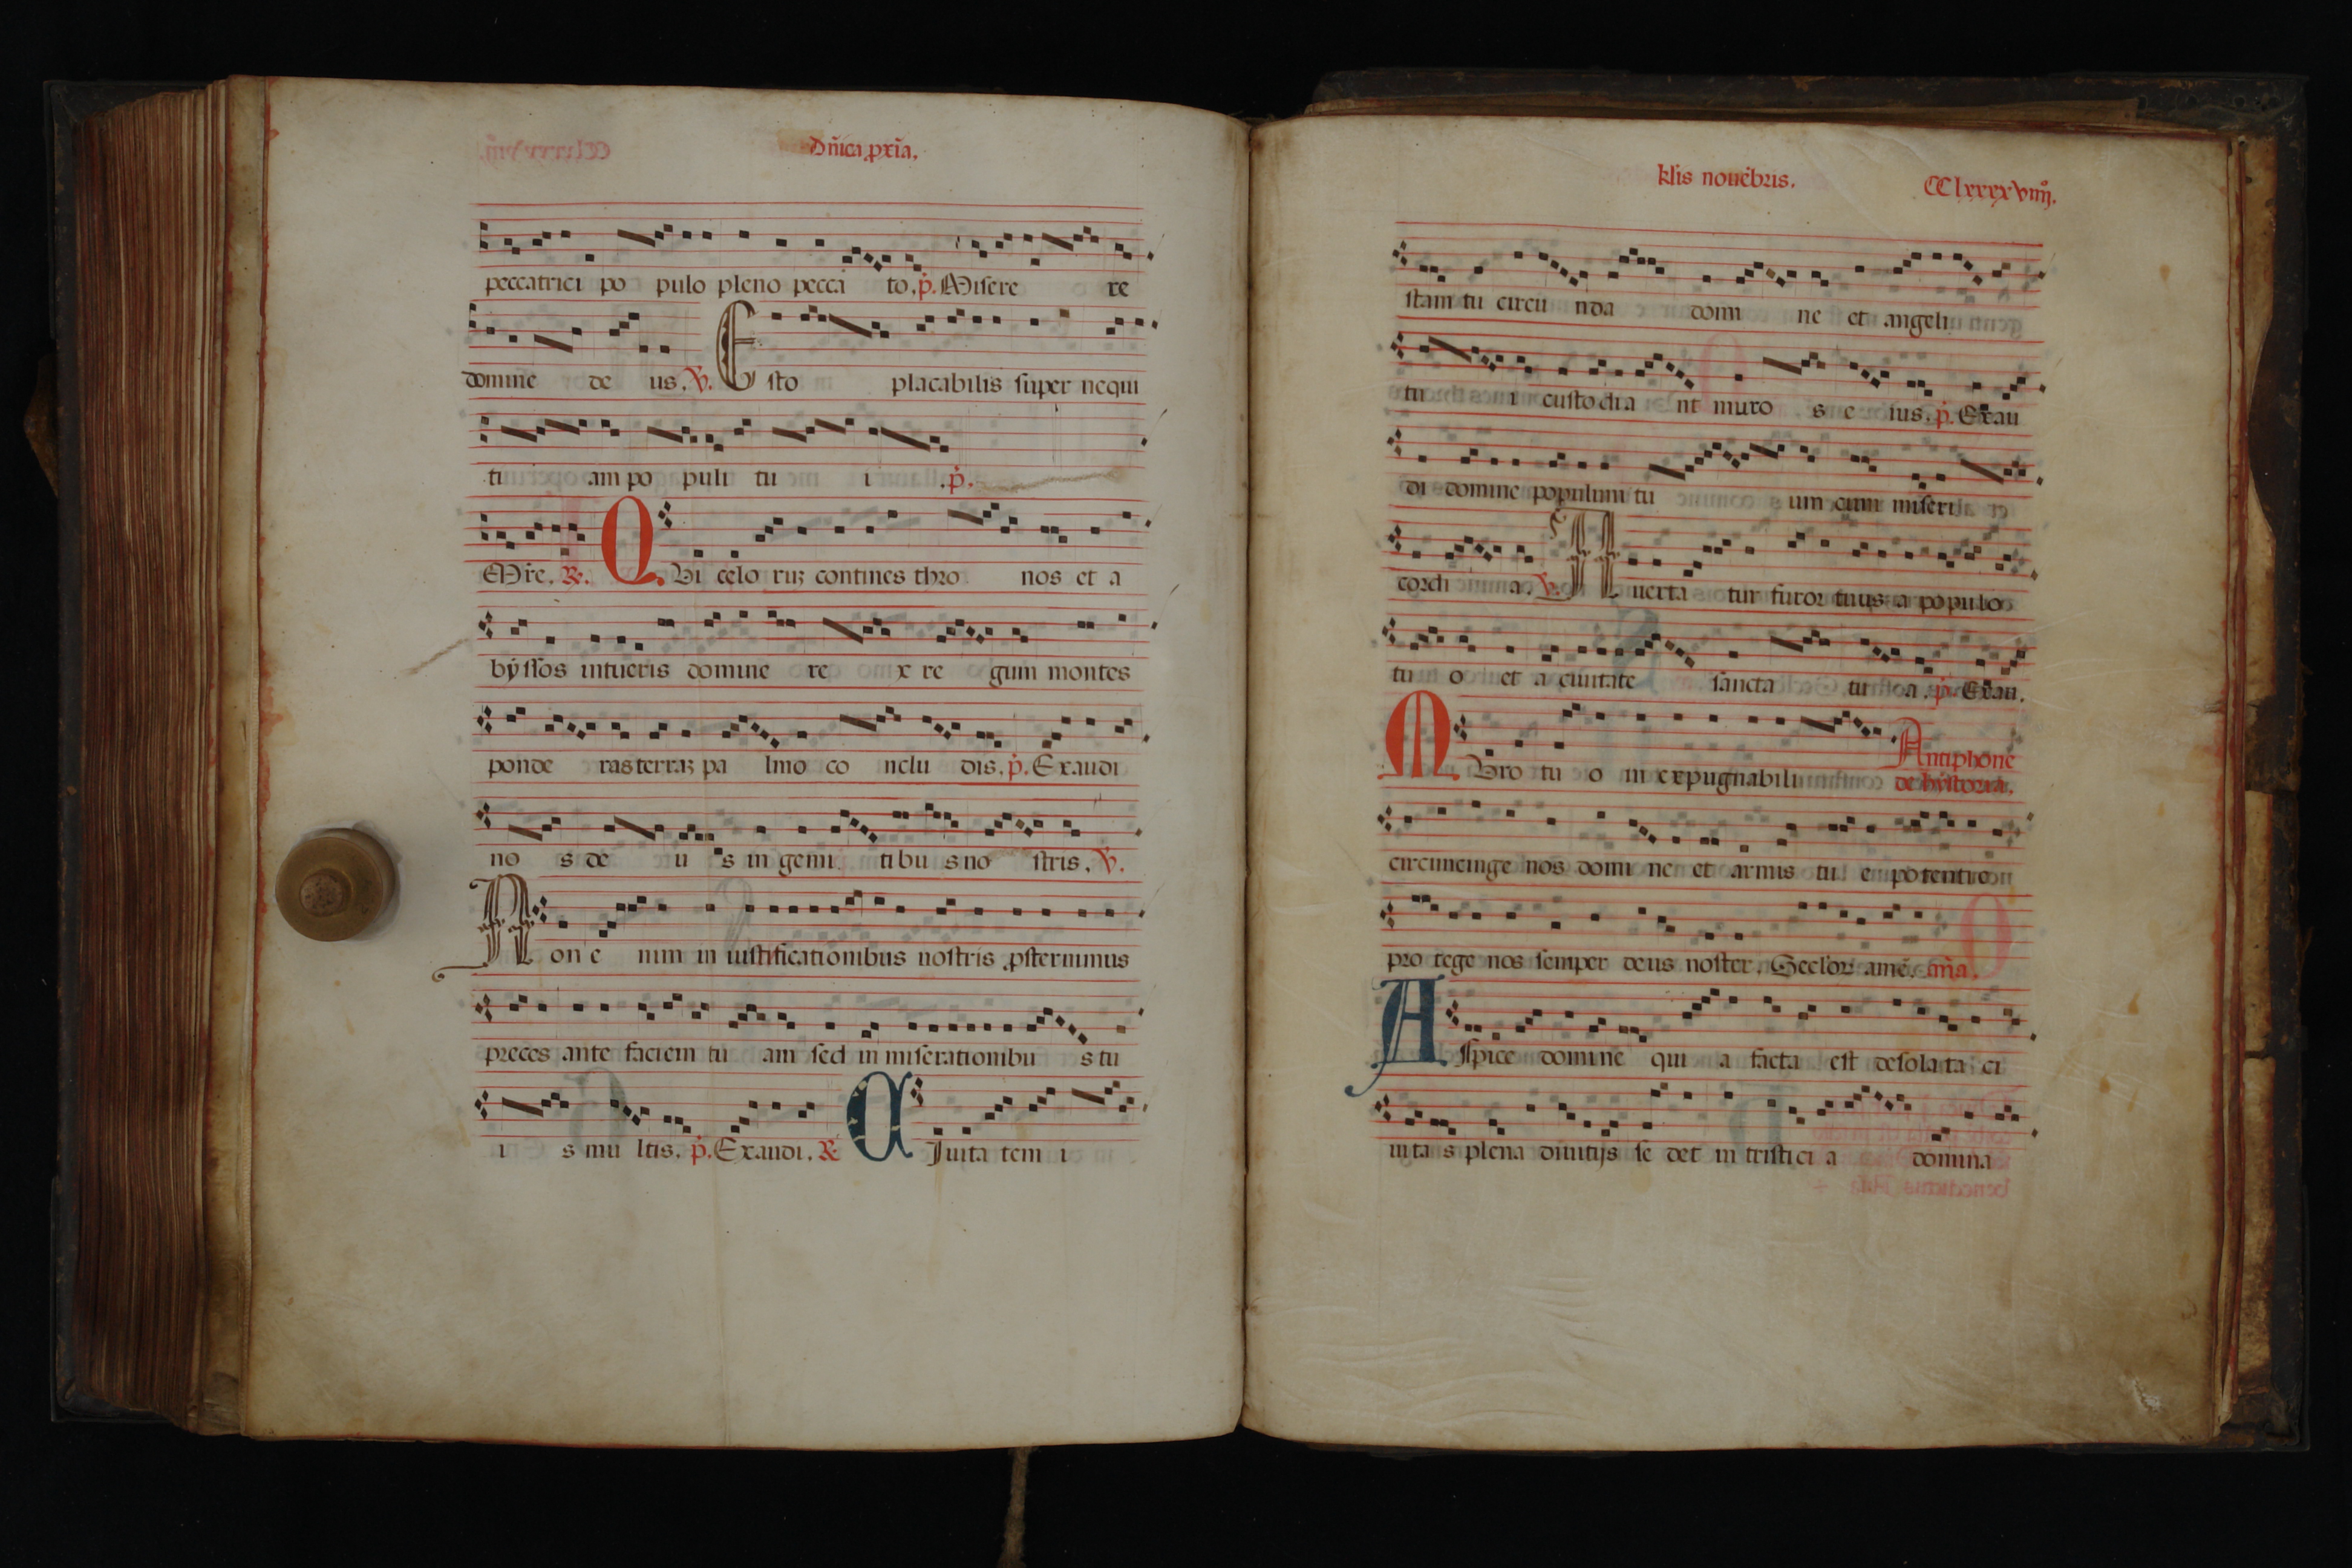 Dñica p̱xĩa.
peccatrici po pulo pleno pecca to. p̃. Misere re
domine de us. V̓. Esto placabilis super nequi
ti am po puli tu i .p̃.
M̃re. R̓. Qui celo ruꝫ contines thro nos et a
byssos intueris domine re x re gum montes
ponde ras terraꝫ pa lmo co nclu dis. p̃. Exaudi
no s de u s in gemi tibu s no stris. V̓.
Non e nim in iustificationibus nostris ꝓsternimus
preces ante faciem tu am sed in miserationibu s tu
i s mu ltis. p̃. Exaudi. R̓ Ciuita tem i
kl̃is nouẽbris. CClxxxxviiij.
stam tu circũ nda domi ne et angeli
tu i custodia nt muro s e ius. p̃. Exau
di domine populum tu um cum miseri
cordi a. V̓. Auerta tur furor tuus a populo
tu o et a ciuitate sancta tu a. p̃. Exau.
Muro tu o in expugnabili Antiphone
de hystoria.
circuncinge nos domi ne et armis tu e potentie
pro tege nos semper deus noster. Secl̃oꝝ amẽ. añã.
Aspice domine qui a facta est desolata ci
uita s plena diuitijs se det in tristici a domina